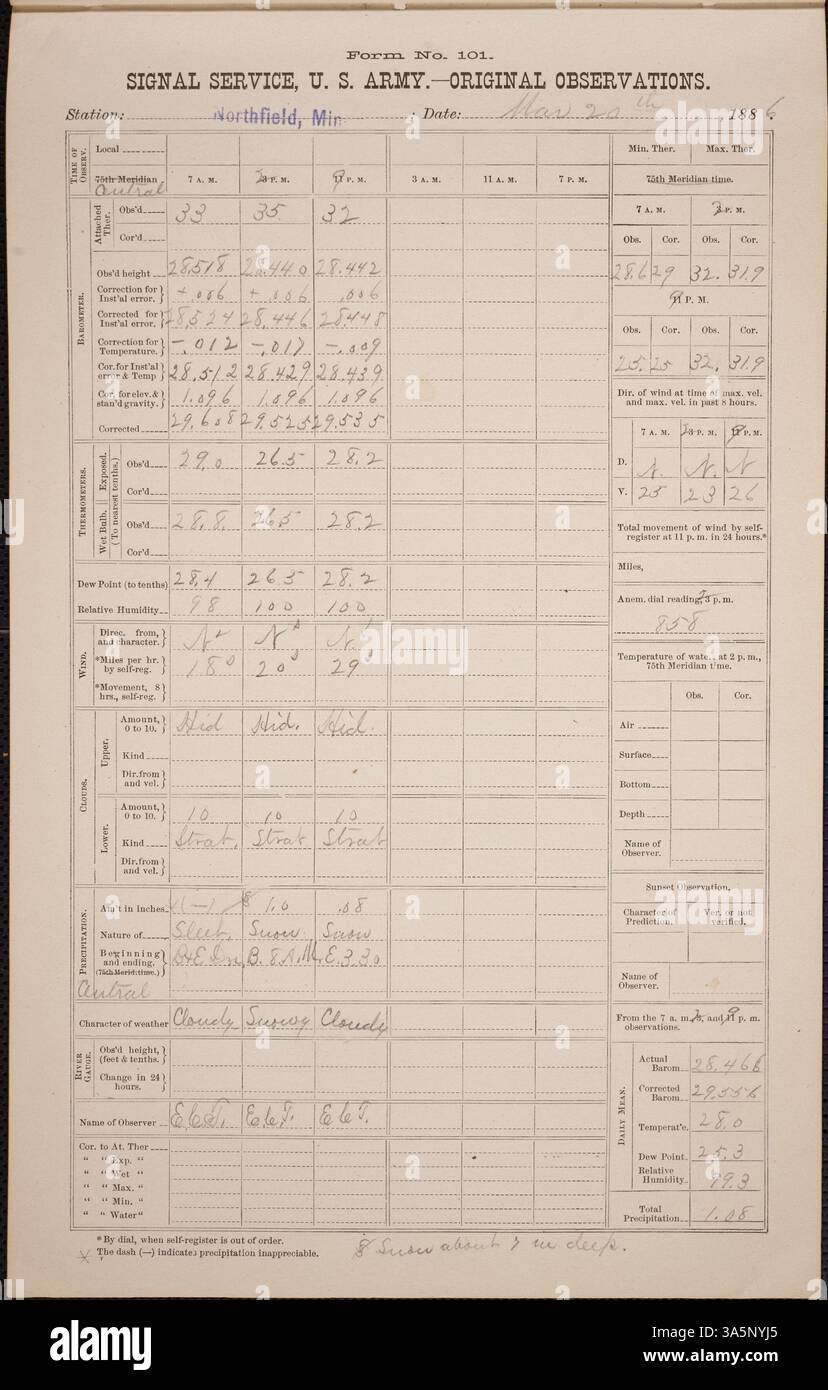 Form No. 101.
SIGNAL SERVICE, U. S. ARMY.—ORIGINAL OBSERVATIONS.
Station: Northfield, Min ; Date: Mar 20th, 1886.
TIME OF OBSERV. Local
75th Meridian 7 A. M. 2 3 P. M. 9 11 P. M. 3 A. M. 11 A. M. 7 P. M.
Central
BAROMETER.
Attached Ther.
Obs'd 33 35 32
Cor'd
Obs'd height 28.518 28.440 28.442
Correction for Inst'al error. +.006 +.006 .006
Corrected for Inst'al error. 28.524 28.446 28.448
Correction for Temperature. -.012 -.017 -.009
Cor. for Inst'al error & Temp 28.512 28.429 28.439
Cor. for elev. & stan'd gravity. 1.096 1.096 1.096
Corrected 29.608 29.525 29.535
THERMOMETERS.
(To nearest tenths.)
Exposed.
Obs'd 29.0 26.5 28.2
Cor'd
Wet Bulb.
Obs'd 28.8 26.5 28.2
Cor'd
Dew Point (to tenths) 28.4 26.5 28.2
Relative Humidity 98 100 100
WIND.
Direc. from, and character. N N N
*Miles per hr. by self-reg. 18 20 29
*Movement, 8 hrs., self-reg.
CLOUDS.
Upper.
Amount, 0 to 10. Hid Hid. Hid.
Kind
Dir. from and vel.
Lower.
Amount, 0 to 10. 10 10 10
Kind Strat. Strat Strat
Dir. from and vel.
PRECIPITATION.
Am't in inches. 1.0 .08
Nature of Sleet. Snow Snow
Beginning and ending. (75th Merid. time.) B. 8 A. M. E. 3 30
Central
Character of weather Cloudy Snowy Cloudy
RIVER GAUGE.
Obs'd height, (feet & tenths.
Change in 24 hours.
Name of Observer E.C.T. E.C.T. E.C.T.
Cor. to At. Ther
" " Exp. "
" " Wet "
" " Max. "
" " Min. "
" " Water "
* By dial, when self-register is out of order.
The dash (—) indicates precipitation inappreciable.
Snow about 7 in deep.
Min. Ther. Max. Ther.
75th Meridian time.
7 A. M. 2 3 P. M.
Obs. Cor. Obs. Cor.
28.6 29 32. 31.9
9 11 P. M.
Obs. Cor. Obs. Cor.
25. 25 32. 31.9
Dir. of wind at time of max. vel. and max. vel. in past 8 hours.
7 A. M. 2 3 P. M. 9 11 P. M.
D. N. N. N
V. 25 23 26
Total movement of wind by self-register at 11 p. m. in 24 hours.*
Miles,
Anem. dial reading, 2 3 p. m.
858
Temperature of water at 2 p. m., 75th Meridian time.
Obs. Cor.
Air
Surface
Bottom
Depth
Name of Observer.
Sunset Observation.
Character of Prediction. Ver. or not verified.
Name of Observer.
From the 7 a. m. 2 3, and 9 11 p. m. observations.
DAILY MEAN.
Actual Barom. 28.466
Corrected Barom. 29.556
Temperat'e. 28.0
Dew Point. 25.3
Relative Humidity. 99.3
Total Precipitation. 1.08
alamy
a
alamy
Image ID: 3A5NYJ5
www.alamy.com